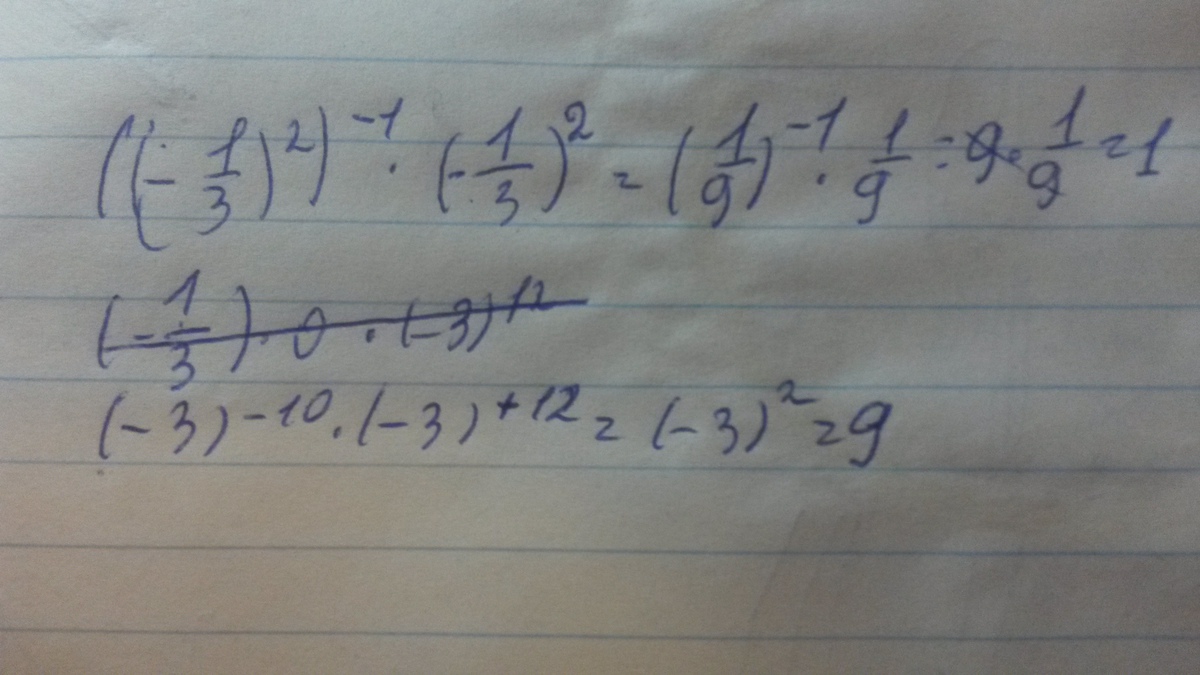 ((-1/3)²)⁻¹ · (-1/3)² = (1/9)⁻¹ · 1/9 = 9 · 1/9 = 1
(-1/3) · 0 · (-3)¹²
(-3)⁻¹⁰ · (-3)⁺¹² = (-3)² = 9